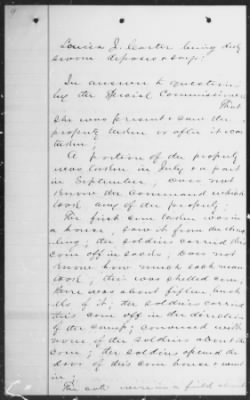 Louisa J. Carter being duly
sworn deposes & says:
In answer to questions
by the Special Commissioner
That
she was present & saw the
property taken or after it was
taken;
A portion of the property
was taken in July & a part
in September; does not
know the command which
took any of the property;
The first corn taken was in
a house, saw it from the
the soldiers carried the
corn off in sacks; does not
know how much each man
took; this was shelled corn;
there was about fifteen bush
els of it; the soldiers carried
this corn off in the direction
of the camp; conversed with
none of the soldiers about the
corn; the soldiers opened the
door of this corn house & went
in;
The oats were in a field about